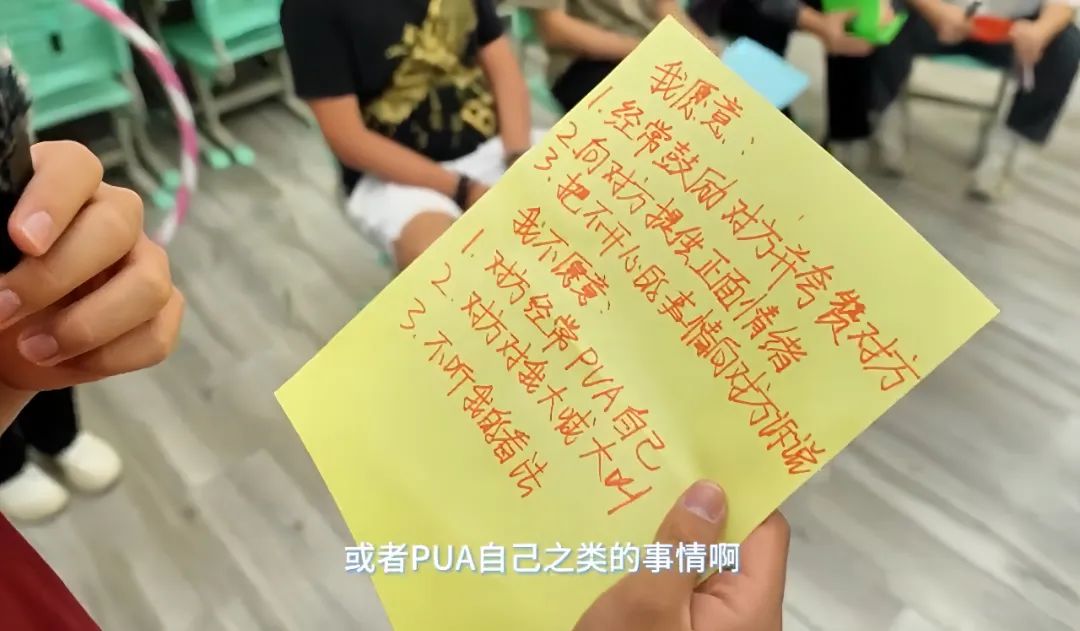 我愿意：
1. 经常鼓励对方并会赞对方
2. 向对方提供正面情绪
3. 把不开心的事情向对方诉说
我不愿意：
1. 对方经常PUA自己
2. 对方对我大喊大叫
3. 不听我的看法
或者PUA自己之类的事情啊